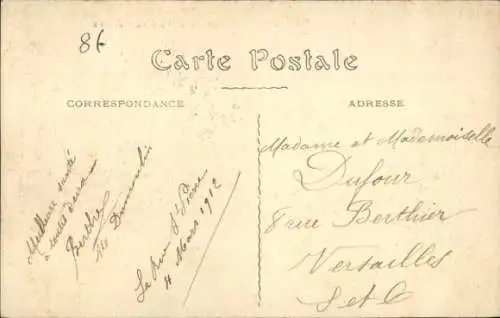 86
Carte Postale
CORRESPONDANCE
ADRESSE
Meilleure santé
à toutes deux
Berthe
Dumoulin
Le
4 Mars 1912
Madame et Mademoiselle
Dufour
8 rue Berthier
Versailles
S et O